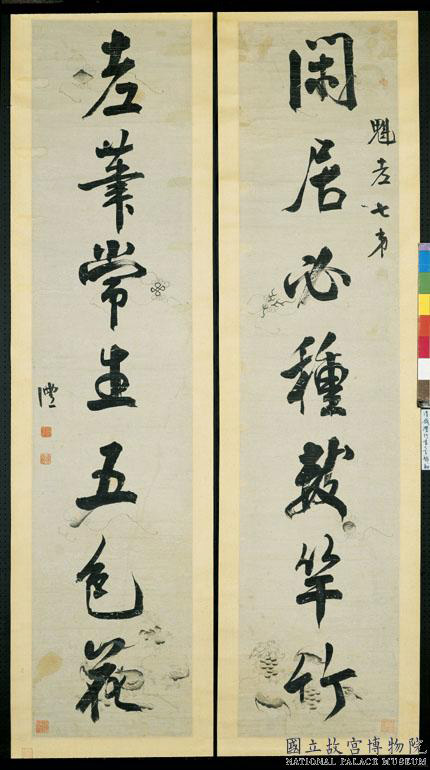 魁老七弟
閑居必種數竿竹
老筆常生五色花
國立故宮博物院
NATIONAL PALACE MUSEUM